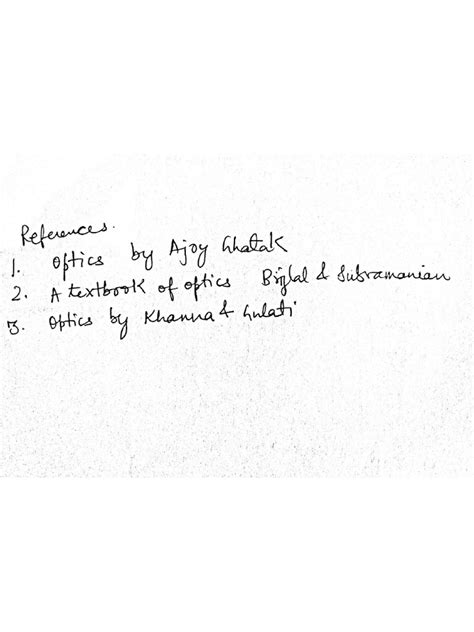 References.
1. Optics by Ajoy Ghatak
2. A textbook of optics Brijlal & Subramanian
3. Optics by Khanna & Gulati